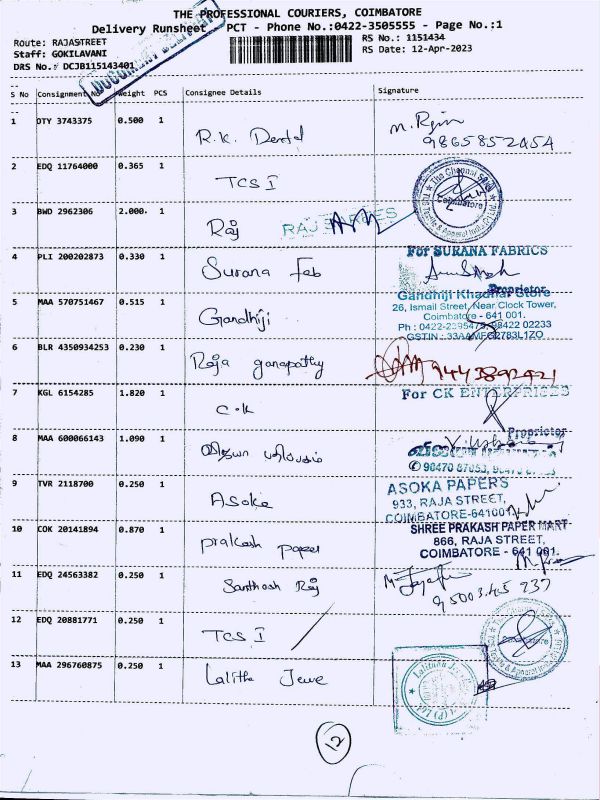 THE PROFESSIONAL COURIERS, COIMBATORE
Delivery Runsheet - PCT - Phone No.:0422-3505555 - Page No.:1
Route: RAJASTREET
Staff: GOKILAVANI
DRS No.: DCJB115143401
RS No.: 1151434
RS Date: 12-Apr-2023
DOCUMENT DELIVERY
S No Consignment No Weight PCS Consignee Details Signature
1 OTY 3743375 0.500 1 R.K. Dental
2 EDQ 11764000 0.365 1 TCS I
The Chennai Silk
Coimbatore
3 BWD 2962306 2.000 1 Raj
4 PLI 200202873 0.330 1 Surana Feb
For SURANA FABRICS
Proprietor
5 MAA 570751467 0.515 1 Gandhiji
Gandhiji Khadhar Store
26, Ismail Street, Near Clock Tower,
Coimbatore - 641 001.
Ph : 0422-2395475, 98422 02233
6 BLR 4350934253 0.230 1 Raja ganapathy
7 KGL 6154285 1.820 1 C.K
For CK ENTERPRISES
Proprietor
8 MAA 600066143 1.090 1
9 TVR 2118700 0.250 1 Asoka
ASOKA PAPERS
933, RAJA STREET,
COIMBATORE-641001
10 COK 20141894 0.870 1 prakash paper
SHREE PRAKASH PAPER MART
866, RAJA STREET,
COIMBATORE - 641 001.
11 EDQ 24563382 0.250 1 Santhosh Raj
12 EDQ 20881771 0.250 1 TCS I
13 MAA 296760875 0.250 1 Lalitha Jewe
12